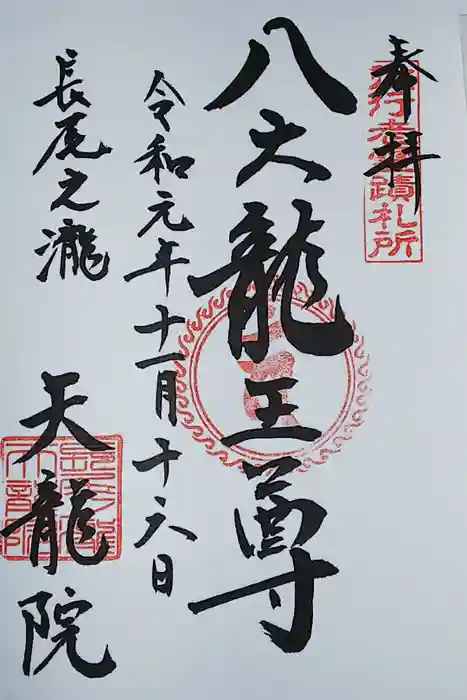 奉拝
役行者霊蹟札所
八大龍王尊
令和元年十一月十六日
長尾之瀧
天龍院